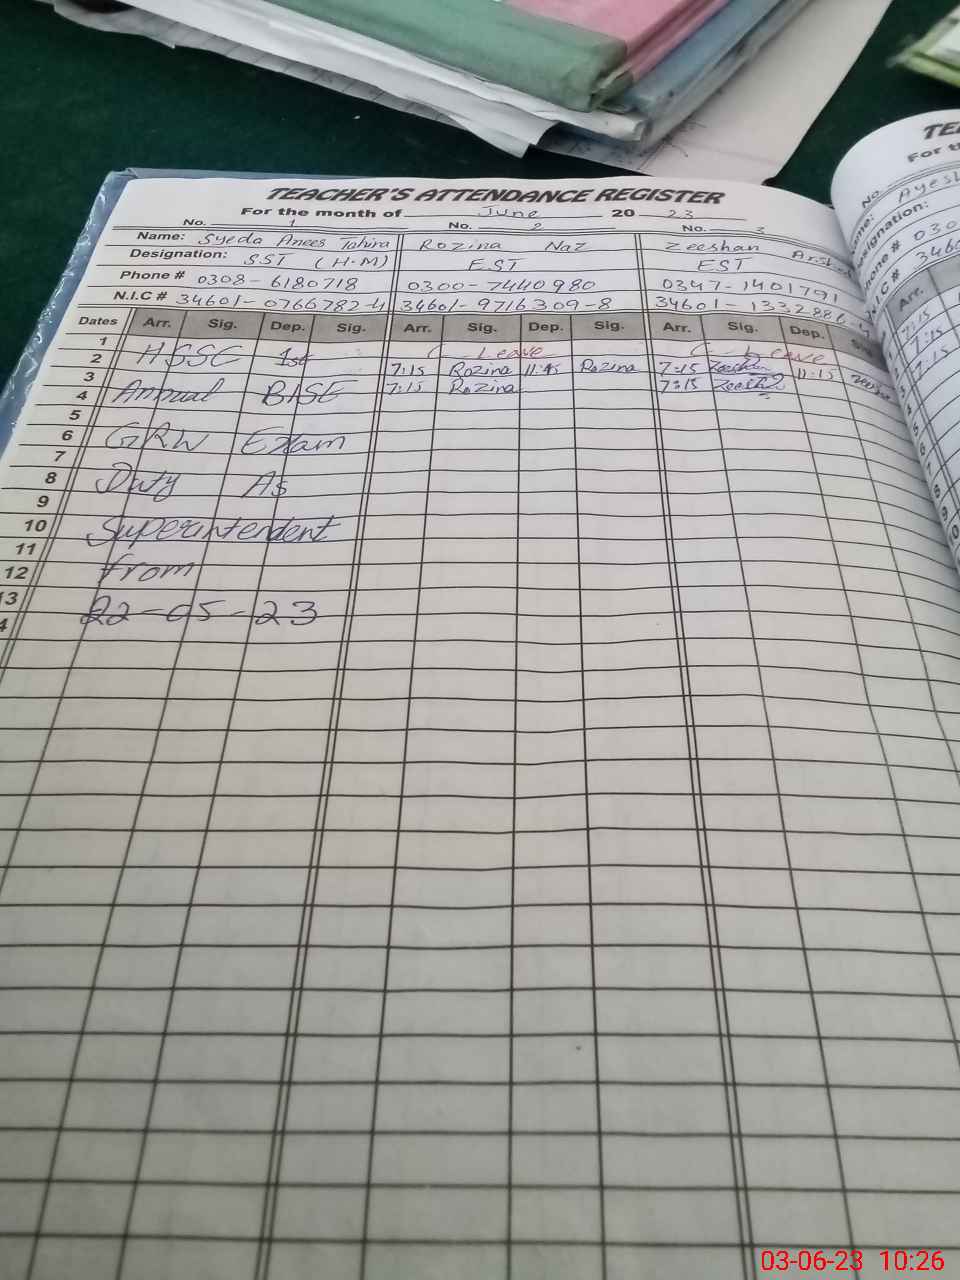 TEACHER'S ATTENDANCE REGISTER
For the month of June 20 23
No. 1 No. 2 No. 3
Name: Syeda Anees Tahira Rozina Naz Zeeshan Arshad
Designation: SST (H.M) EST EST
Phone # 0308-6180718 0300-7440980 0347-1401791
N.I.C # 34601-0766782-4 34601-9716309-8 34601-1332886-
Dates Arr. Sig. Dep. Sig. Arr. Sig. Dep. Sig. Arr. Sig. Dep. Sig.
1 C. Leave C. Leave
2 HSSC 1st 7:15 Rozina 11:15 Rozina 7:15 Zeeshan 11:15 Zeeshan
3 7:15 Rozina 7:15 Zeeshan
4 Annual BISE
5
6 GRW Exam
7
8 Duty As
9
10 Superintendent
11
12 from
13
4 22-05-23
TE
For th
No.
ame: Ayesh
signation:
hone # 030
N.I.C # 3460
Arr.
7:15
7:15
7:15
3
4
5
6
7
8
9
03-06-23 10:26